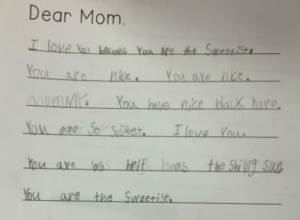 Dear Mom,
I love you becues You are the Sweetist.
You are nice. You are nice.
You have nice black hare.
You are So Sweet. I love You.
You are as as the Shinig sun
You are the Sweetist.